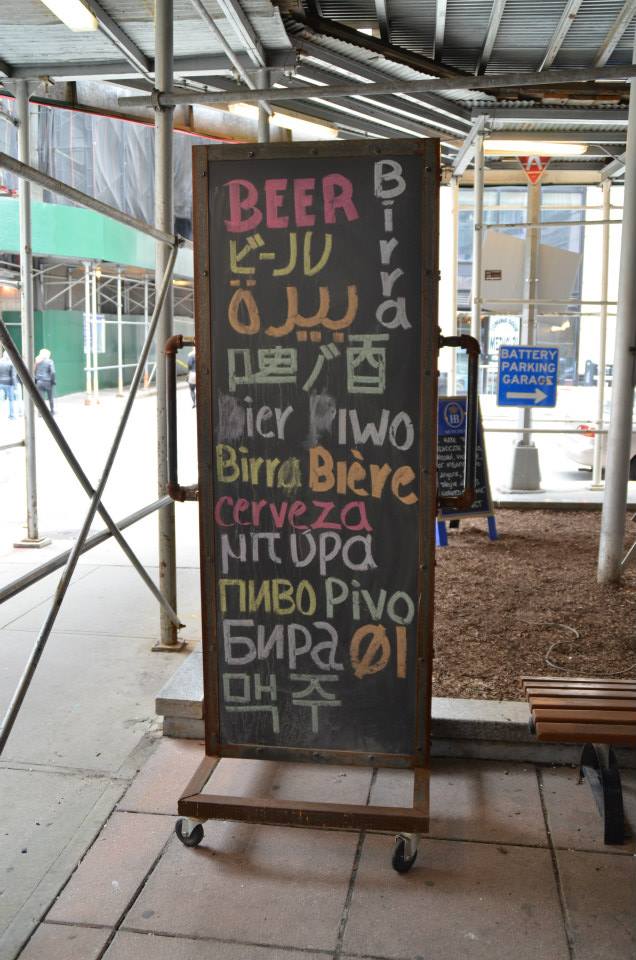 BEER
Birra
ビール
بيرة
啤酒
Bier PIWO
Birra Bière
cerveza
μπύρα
пиво Pivo
Бира Øl
맥주
A
BATTERY
PARKING
GARAGE
HB